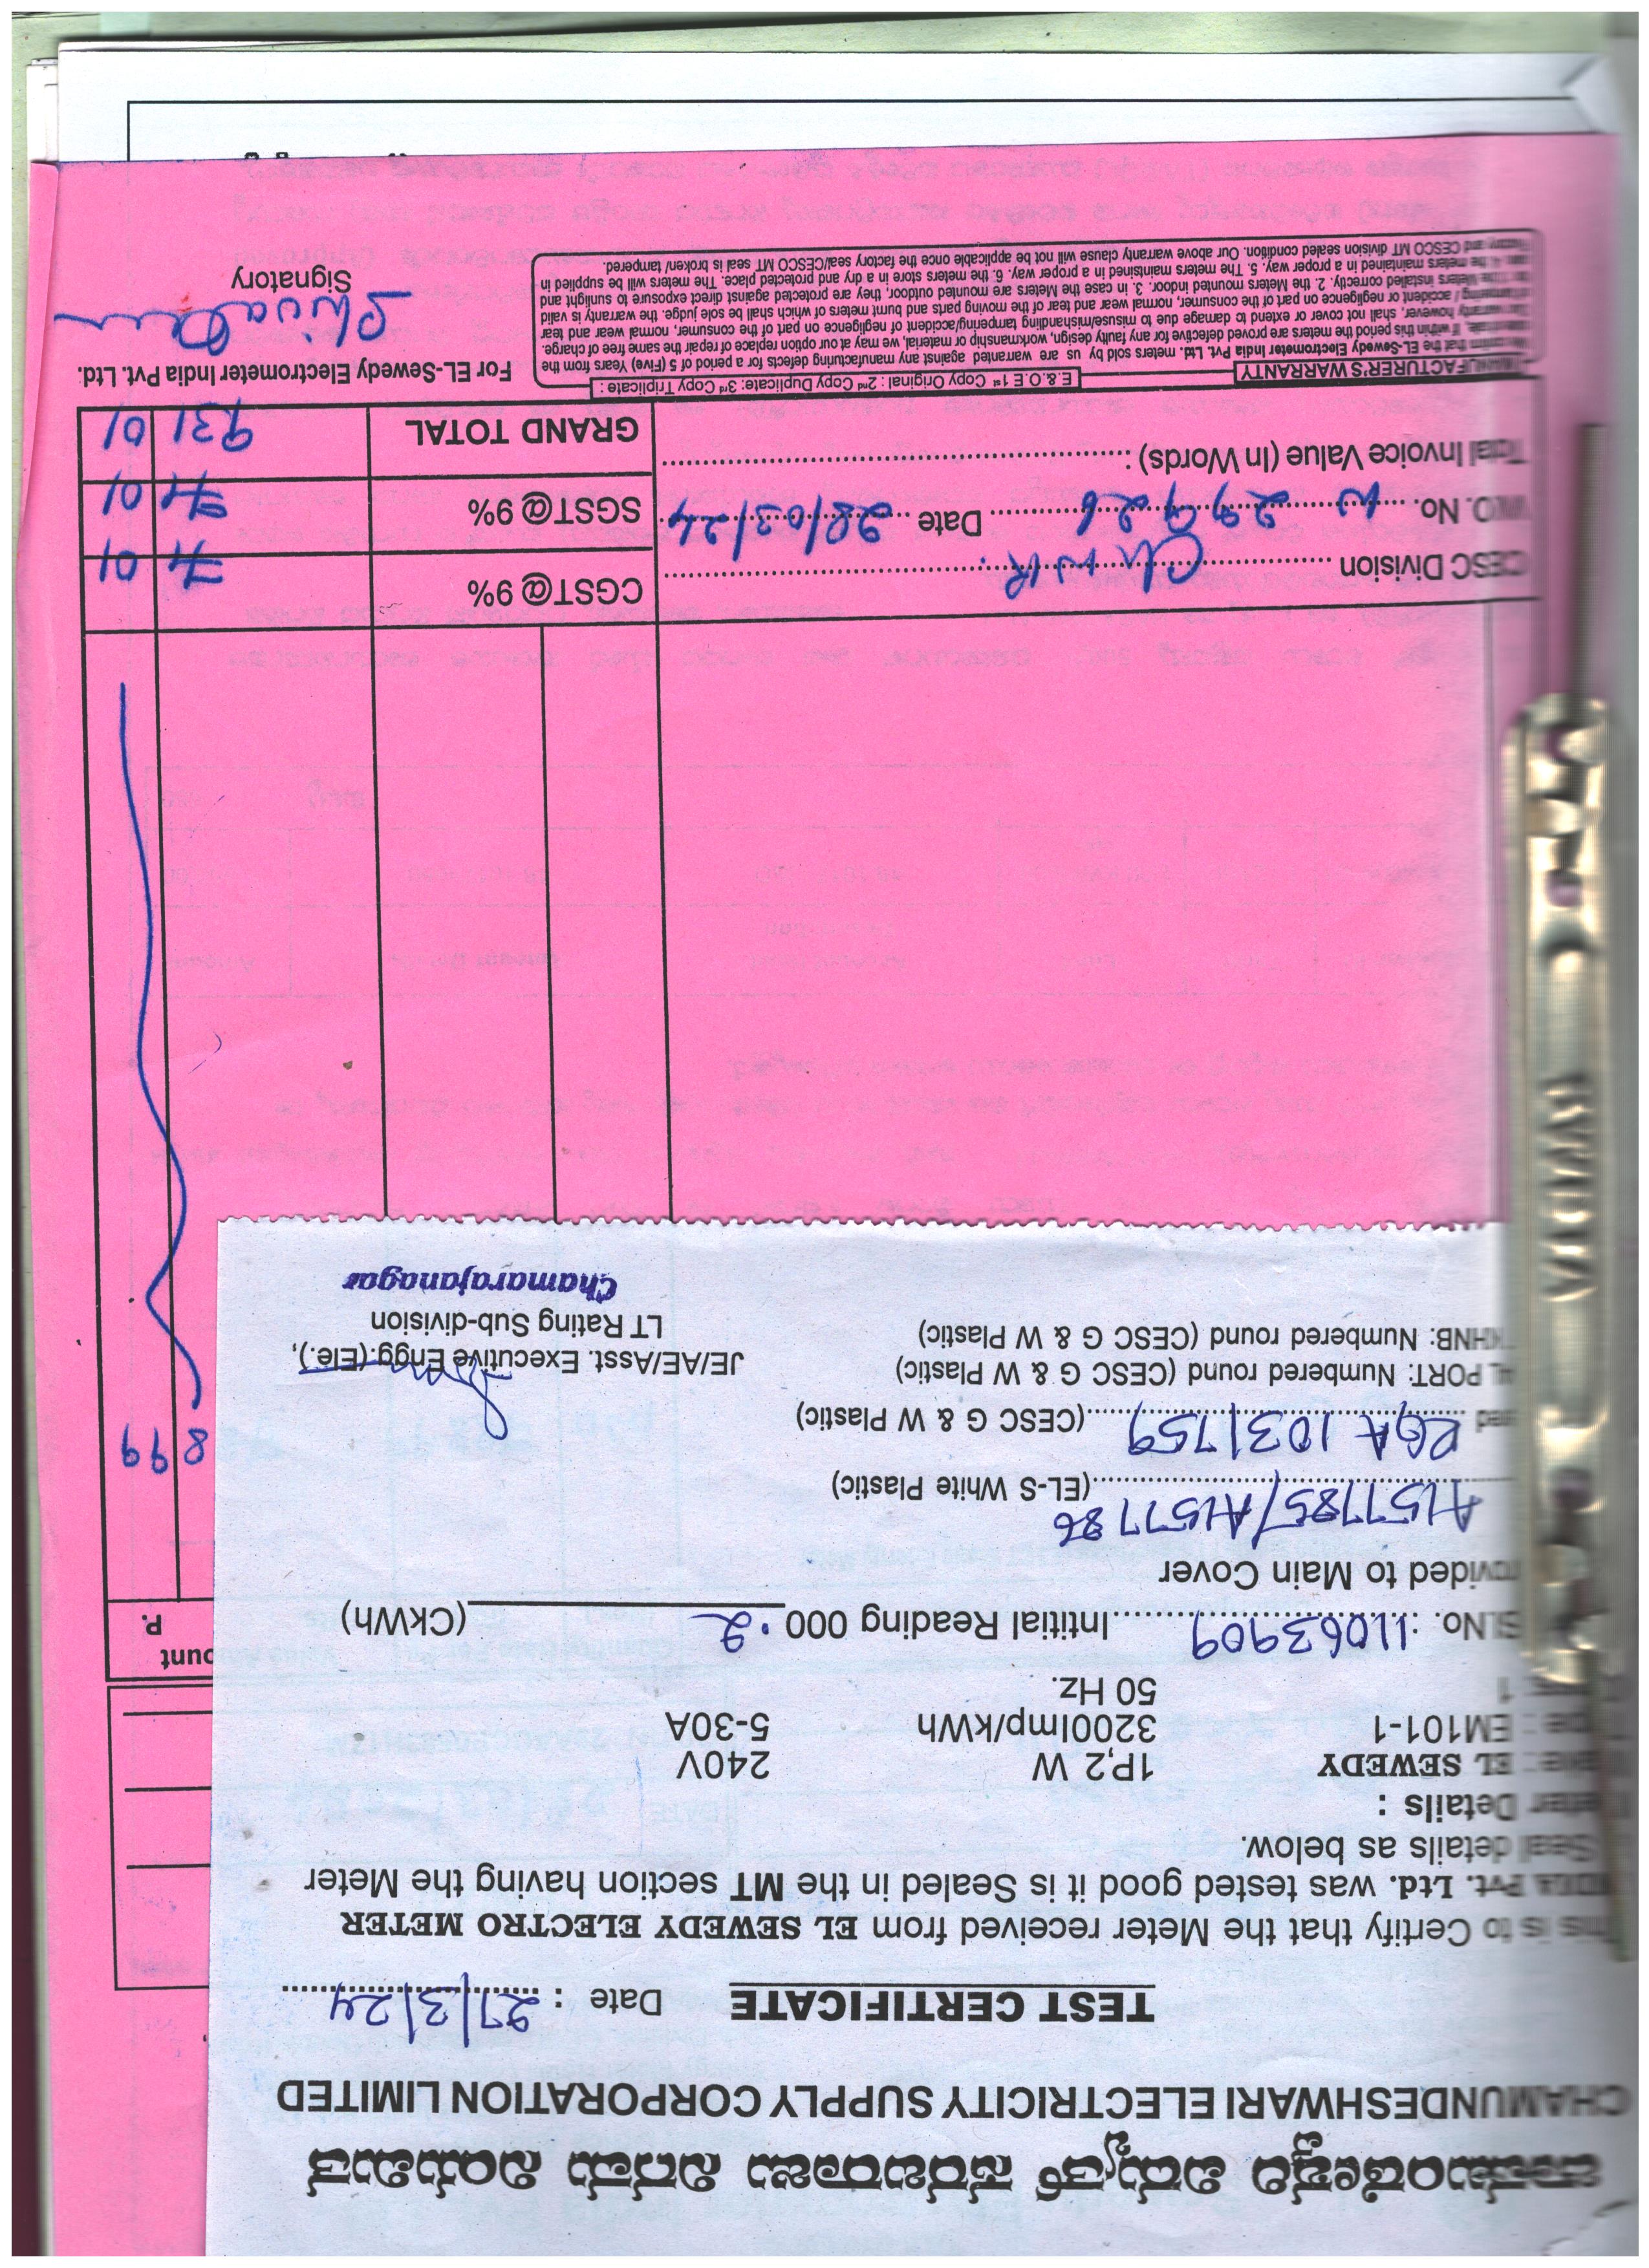 ಚಾಮುಂಡೇಶ್ವರಿ ವಿದ್ಯುತ್ ಸರಬರಾಜು ನಿಗಮ ನಿಯಮಿತ
CHAMUNDESHWARI ELECTRICITY SUPPLY CORPORATION LIMITED
TEST CERTIFICATE Date : 27/3/24
This is to Certify that the Meter received from EL SEWEDY ELECTRO METER
Pvt. Ltd. was tested good it is Sealed in the MT section having the Meter
Seal details as below.
Details :
: EL SEWEDY 1P,2 W 240V
: EM101-1 3200Imp/kWh 5-30A
1 50 Hz.
Sl.No. : 11063909 Intitial Reading 000 .2 (CkWh)
ovided to Main Cover
A1577785/A1577786 (EL-S White Plastic)
RGA 1031759 (CESC G & W Plastic)
PORT: Numbered round (CESC G & W Plastic)
KHNB: Numbered round (CESC G & W Plastic)
JE/AE/Asst. Executive Engg.(Ele.),
LT Rating Sub-division
Chamarajanagar
ount
P.
899
CESC Division Ch NR. CGST@ 9% 71 01
No. N 29926 Date 28/03/24 SGST@ 9% 71 01
Total Invoice Value (In Words) : GRAND TOTAL 931 01
E.& O.E 1st Copy Original : 2nd Copy Duplicate: 3rd Copy Triplicate :
MANUFACTURER'S WARRANTY
that the EL-Sewedy Electrometer India Pvt. Ltd. meters sold by us are warranted against any manufacturing defects for a period of 5 (Five) Years from the
If within this period the meters are proved defective for any faulty design, workmanship or material, we may at our option replace of repair the same free of charge.
Our warranty however, shall not cover or extend to damage due to misuse/mishandling tampering/accident of negligence on part of the consumer, normal wear and tear
of tampering / accident or negligence on part of the consumer, normal wear and tear of the moving parts and burnt meters of which shall be sole judge. the warranty is valid
Meters installed correctly. 2. the Meters mounted indoor. 3. in case the Meters are mounted outdoor, they are protected against direct exposure to sunlight and
4. the meters maintained in a proper way. 5. The meters maintained in a proper way. 6. the meters store in a dry and protected place. The meters will be supplied in
Factory and CESCO MT division sealed condition. Our above warranty clause will not be applicable once the factory seal/CESCO MT seal is broken/ tampered.
For EL-Sewedy Electrometer India Pvt. Ltd.
Signatory
INDIA